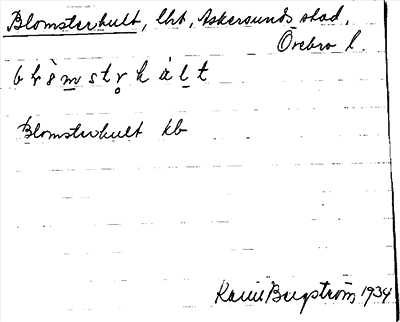 Blomsterhult, lht, Askersunds stad,
Örebro l.
Blomsterhult kb
Karin Bergström 1934